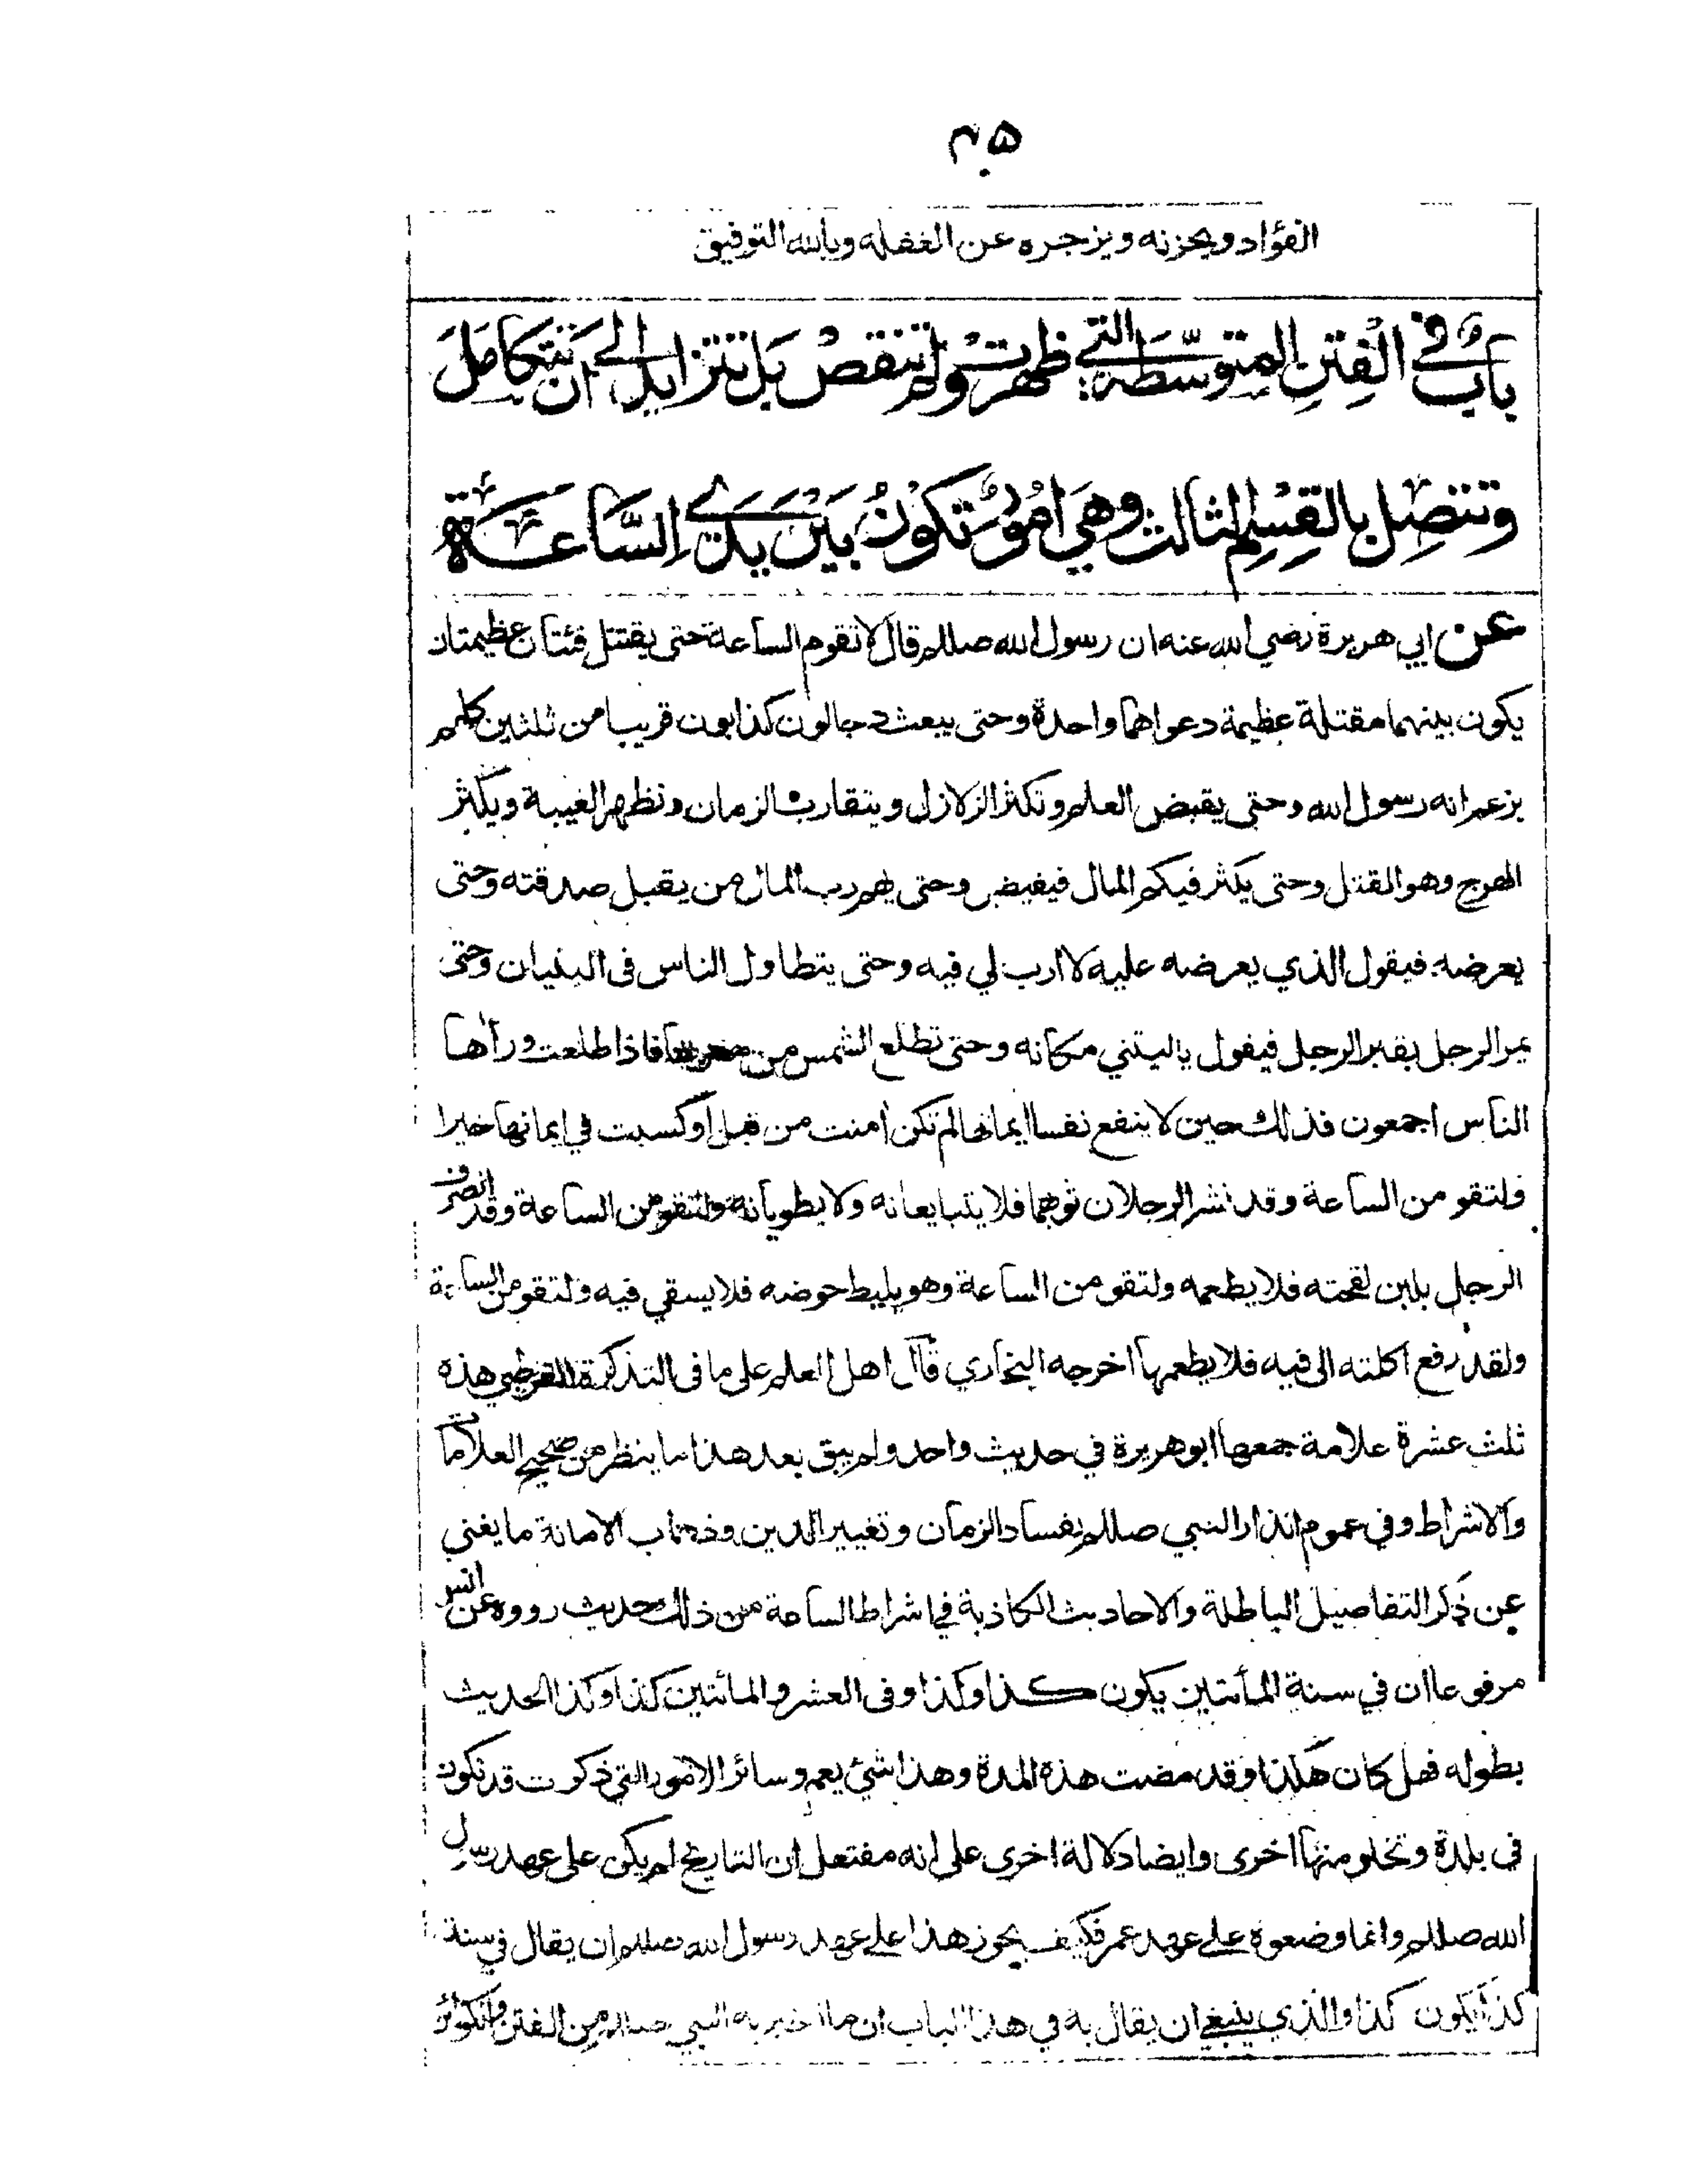 ٢٠٥
الفؤاد ويحزنه ويزجره عن الغفلة وبالله التوفيق
بابٌ في الفتن المتوسّطة التي ظهرت ولم تنقص بل تتزايد إلى أن تتكامل
وتتصل بالقسم الثالث وهي أمورٌ تكون بين يدي السّاعة
عن ابي هريرة رضي الله عنه ان رسول الله صللم قال لا تقوم الساعة حتى يقتتل فئتان عظيمتان
يكون بينهما مقتلة عظيمة دعواهما واحدة وحتى يبعث دجالون كذابون قريبا من ثلثين كلهم
يزعم انه رسول الله وحتى يقبض العلم وتكثر الزلازل ويتقارب الزمان وتظهر الغيبة ويكثر
الهرج وهو القتل وحتى يكثر فيكم المال فيفيض وحتى يهم رب المال من يقبل صدقته وحتى
يعرضه فيقول الذي يعرضه عليه لا ارب لي فيه وحتى يتطاول الناس فى البنيان وحتى
يمر الرجل بقبر الرجل فيقول ياليتني مكانه وحتى تطلع الشمس من مغربها فاذا طلعت ورأها
الناس اجمعون فذلك حين لا ينفع نفسا ايمانها لم تكن أمنت من قبل أو كسبت في ايمانها خيرا
ولتقومن الساعة وقد نشر الرجلان ثوبهما فلا يتبايعانه ولا يطويانه ولتقومن الساعة وقد انصرف
الرجل بلبن لقحته فلا يطعمه ولتقومن الساعة وهو يليط حوضه فلا يسقي فيه ولتقومن الساعة
ولقد رفع اكلته الى فيه فلا يطعمها اخرجه البخاري قال اهل العلم على ما فى التذكرة للقرطبي هذه
ثلث عشرة علامة جمعها ابو هريرة في حديث واحد ولم يبق بعد هذا ما ينظر من صحيح العلامات
والاشراط وفي عموم انذار النبي صللم بفساد الزمان وتغيير الدين وذهاب الامانة ما يغني
عن ذكر التفاصيل الباطلة والاحاديث الكاذبة في اشراط الساعة من ذلك حديث رووه عن انس
مرفوعا ان في سنة المأتين يكون كذا وكذا وفى العشر والمائتين كذا وكذا الحديث
بطوله فهل كان هكذا وقد مضت هذه المدة وهذا شئ يعم وسائر الامور التي ذكرت قد تكون
في بلدة وتخلو منها اخرى وايضا دلالة اخرى على انه مفتعل ان التاريخ لم يكن على عهد رسول
الله صللم وانما وضعوه على عهد عمر فكيف يجوز هذا على عهد رسول الله صللم ان يقال في سنة
كذا يكون كذا والذي ينبغي ان يقال به في هذا الباب ان ما اخبر به النبي صللم من الفتن والكوائن